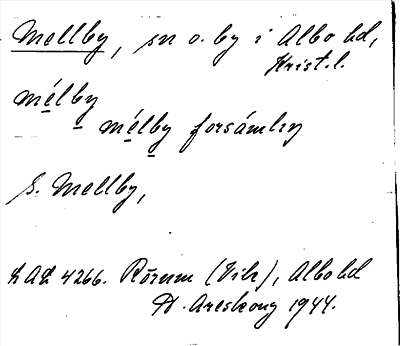 Mellby, sn o. by i Albo hd,
Krist. l.
mélby
mélby forsámlıŋ
S. Mellby,
LAL 4266. Rörum (Vik), Albo hd
A. Areskoug 1944.